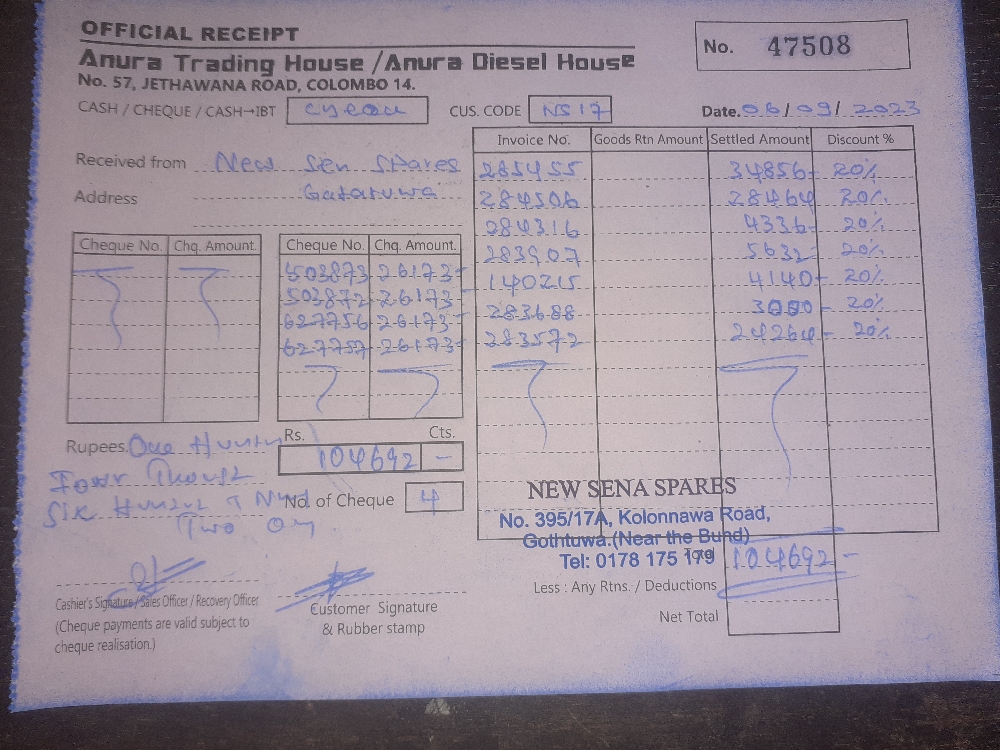 OFFICIAL RECEIPT
No. 47508
Anura Trading House / Anura Diesel House
No. 57, JETHAWANA ROAD, COLOMBO 14.
CASH / CHEQUE / CASH→IBT CUS. CODE NS17 Date. 06/09/2023
Received from New Sen Spares
Address
Invoice No. Goods Rtn Amount Settled Amount Discount %
285455 34856- 20%
284506 28464- 20%
284316 4336- 20%
283907 5632- 20%
140215 4140- 20%
283688 3000- 20%
283572 24264- 20%
Cheque No. Chq. Amount.
Cheque No. Chq. Amount.
503873 26173-
503872 26173-
627756 26173-
627757 26173-
Rs. Cts.
104692 -
Rupees. One
Four
Six
Two
No. of Cheque 4
NEW SENA SPARES
No. 395/17A, Kolonnawa Road,
Gothtuwa.(Near the Bund)
Tel: 0178 175 179
104692-
Less : Any Rtns. / Deductions
Net Total
Cashier's Signature / Sales Officer / Recovery Officer
(Cheque payments are valid subject to
cheque realisation.)
Customer Signature
& Rubber stamp